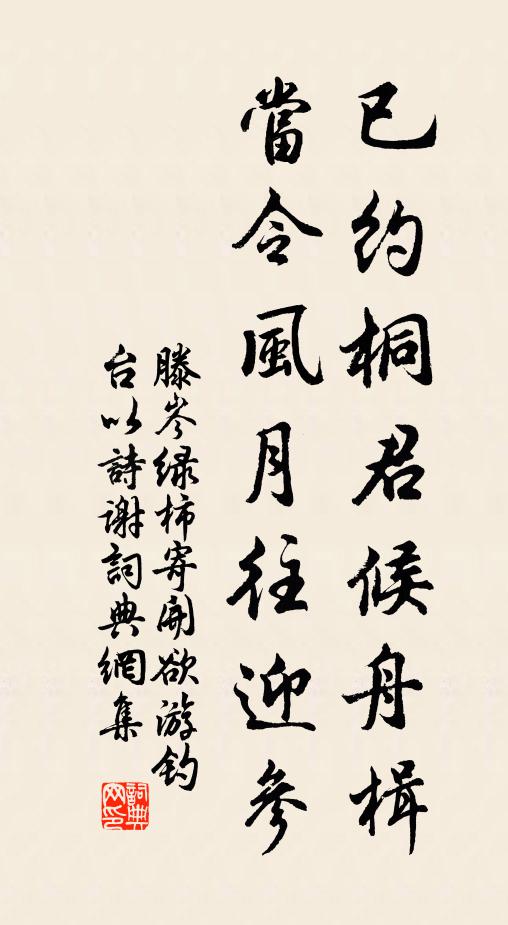 已約桐君候舟楫
當令風月往迎參
滕岑绿柿寄開欲游钓
台以詩谢詞典網集
詞典網印